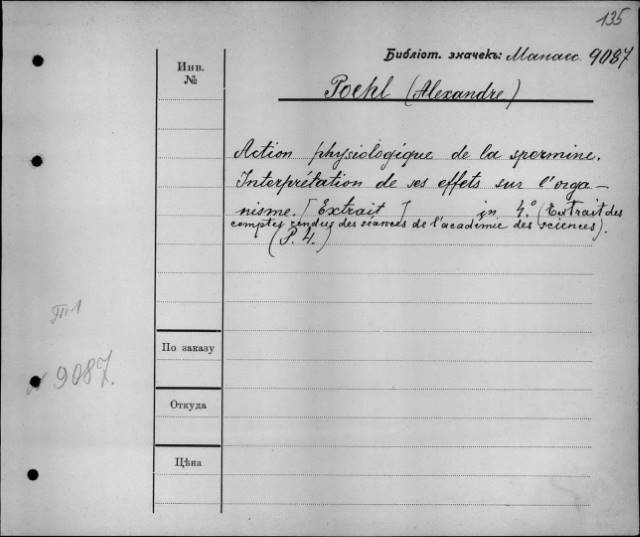 135
Библіот. значекъ: Манасс 9087
Инв.
№
Poehl (Alexandre)
Action physiologique de la spermine.
Interprétation de ses effets sur l'orga-
nisme. [Extrait] in 4.° (Extrait des
comptes rendus des séances de l'académie des sciences).
(P. 4.)
По заказу
№ 9087.
Откуда
Цѣна